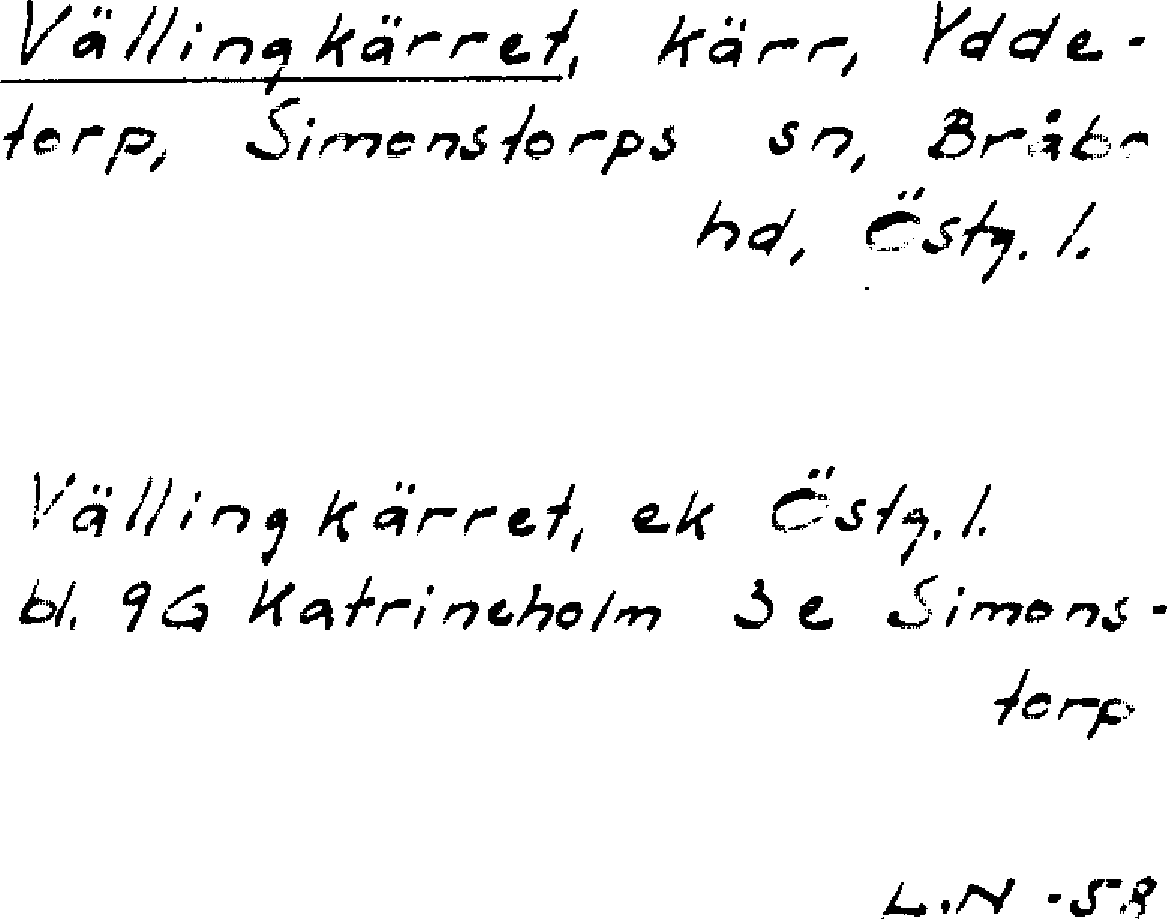 Vällingkärret, kärr, Ydde-
torp, Simonstorps sn, Bråbo
hd, Östg. l.
Vällingkärret, ek Östg. l.
bl. 9G Katrineholm 3e Simons-
torp
L.N -58